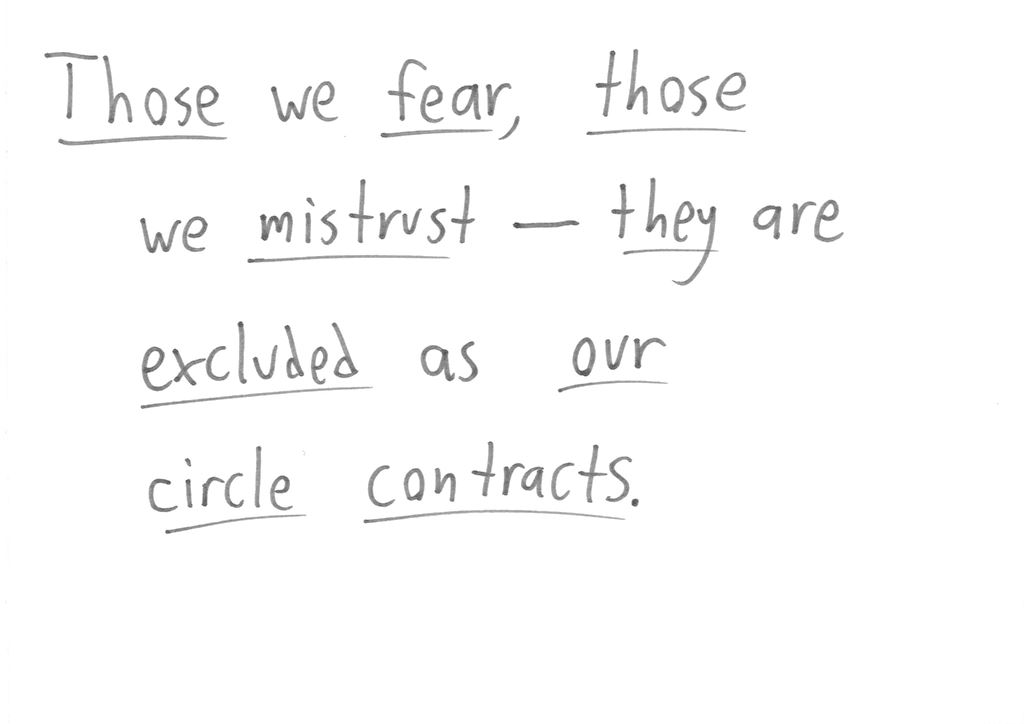 Those we fear, those
we mistrust — they are
excluded as our
circle contracts.